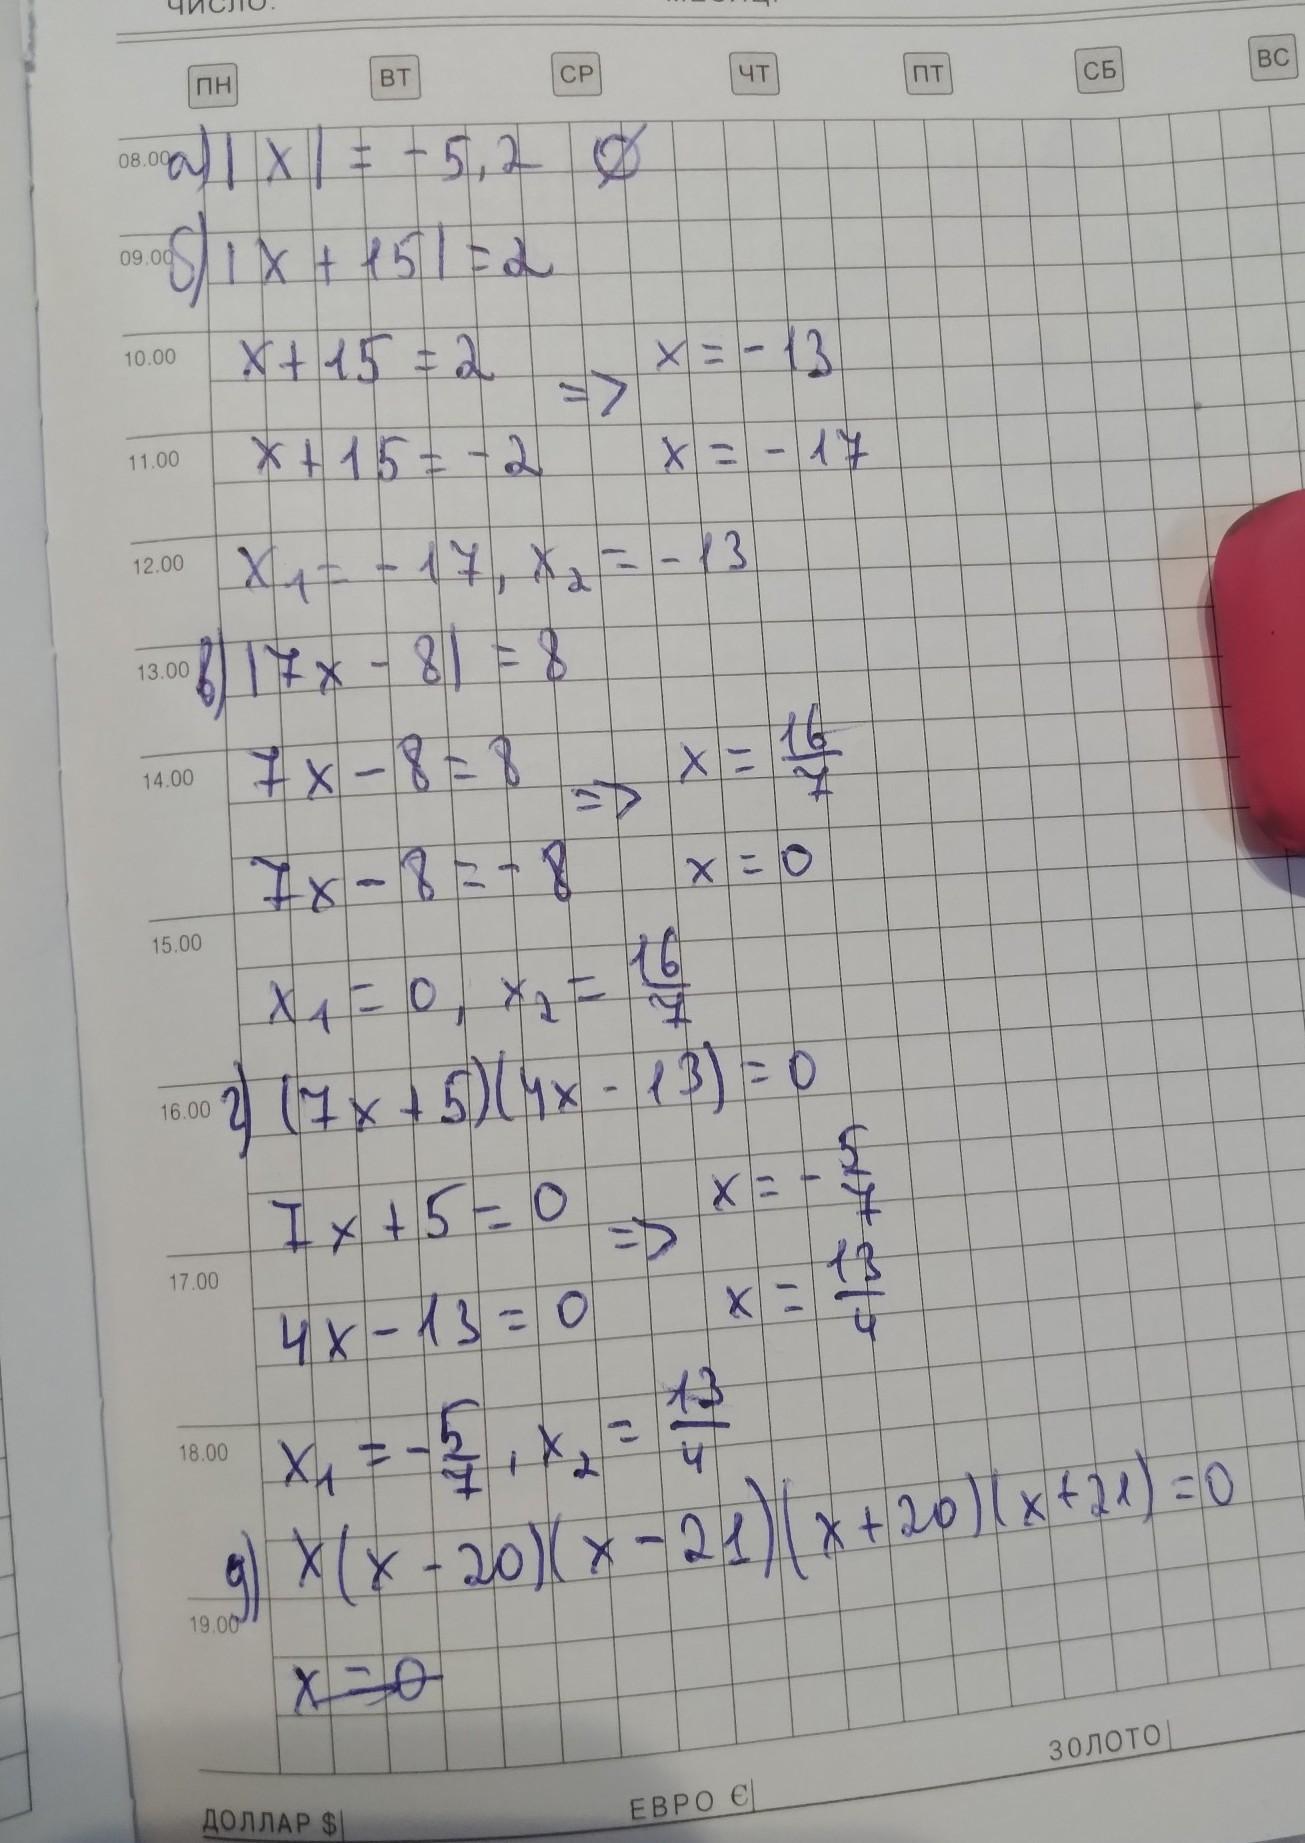 ЧИСЛО:
ПН ВТ СР ЧТ ПТ СБ ВС
08.00 а) |x| = -5,2 ∅
09.00 б) |x + 15| = 2
10.00 x + 15 = 2 => x = -13
11.00 x + 15 = -2 x = -17
12.00 x₁ = -17, x₂ = -13
13.00 в) |7x - 8| = 8
14.00 7x - 8 = 8 => x = 16/7
7x - 8 = -8 x = 0
15.00
x₁ = 0, x₂ = 16/7
16.00 г) (7x + 5)(4x - 13) = 0
7x + 5 = 0 => x = -5/7
17.00
4x - 13 = 0 x = 13/4
18.00 x₁ = -5/7, x₂ = 13/4
д) x(x - 20)(x - 21)(x + 20)(x + 21) = 0
19.00
x = 0
ДОЛЛАР $| ЕВРО €| ЗОЛОТО|